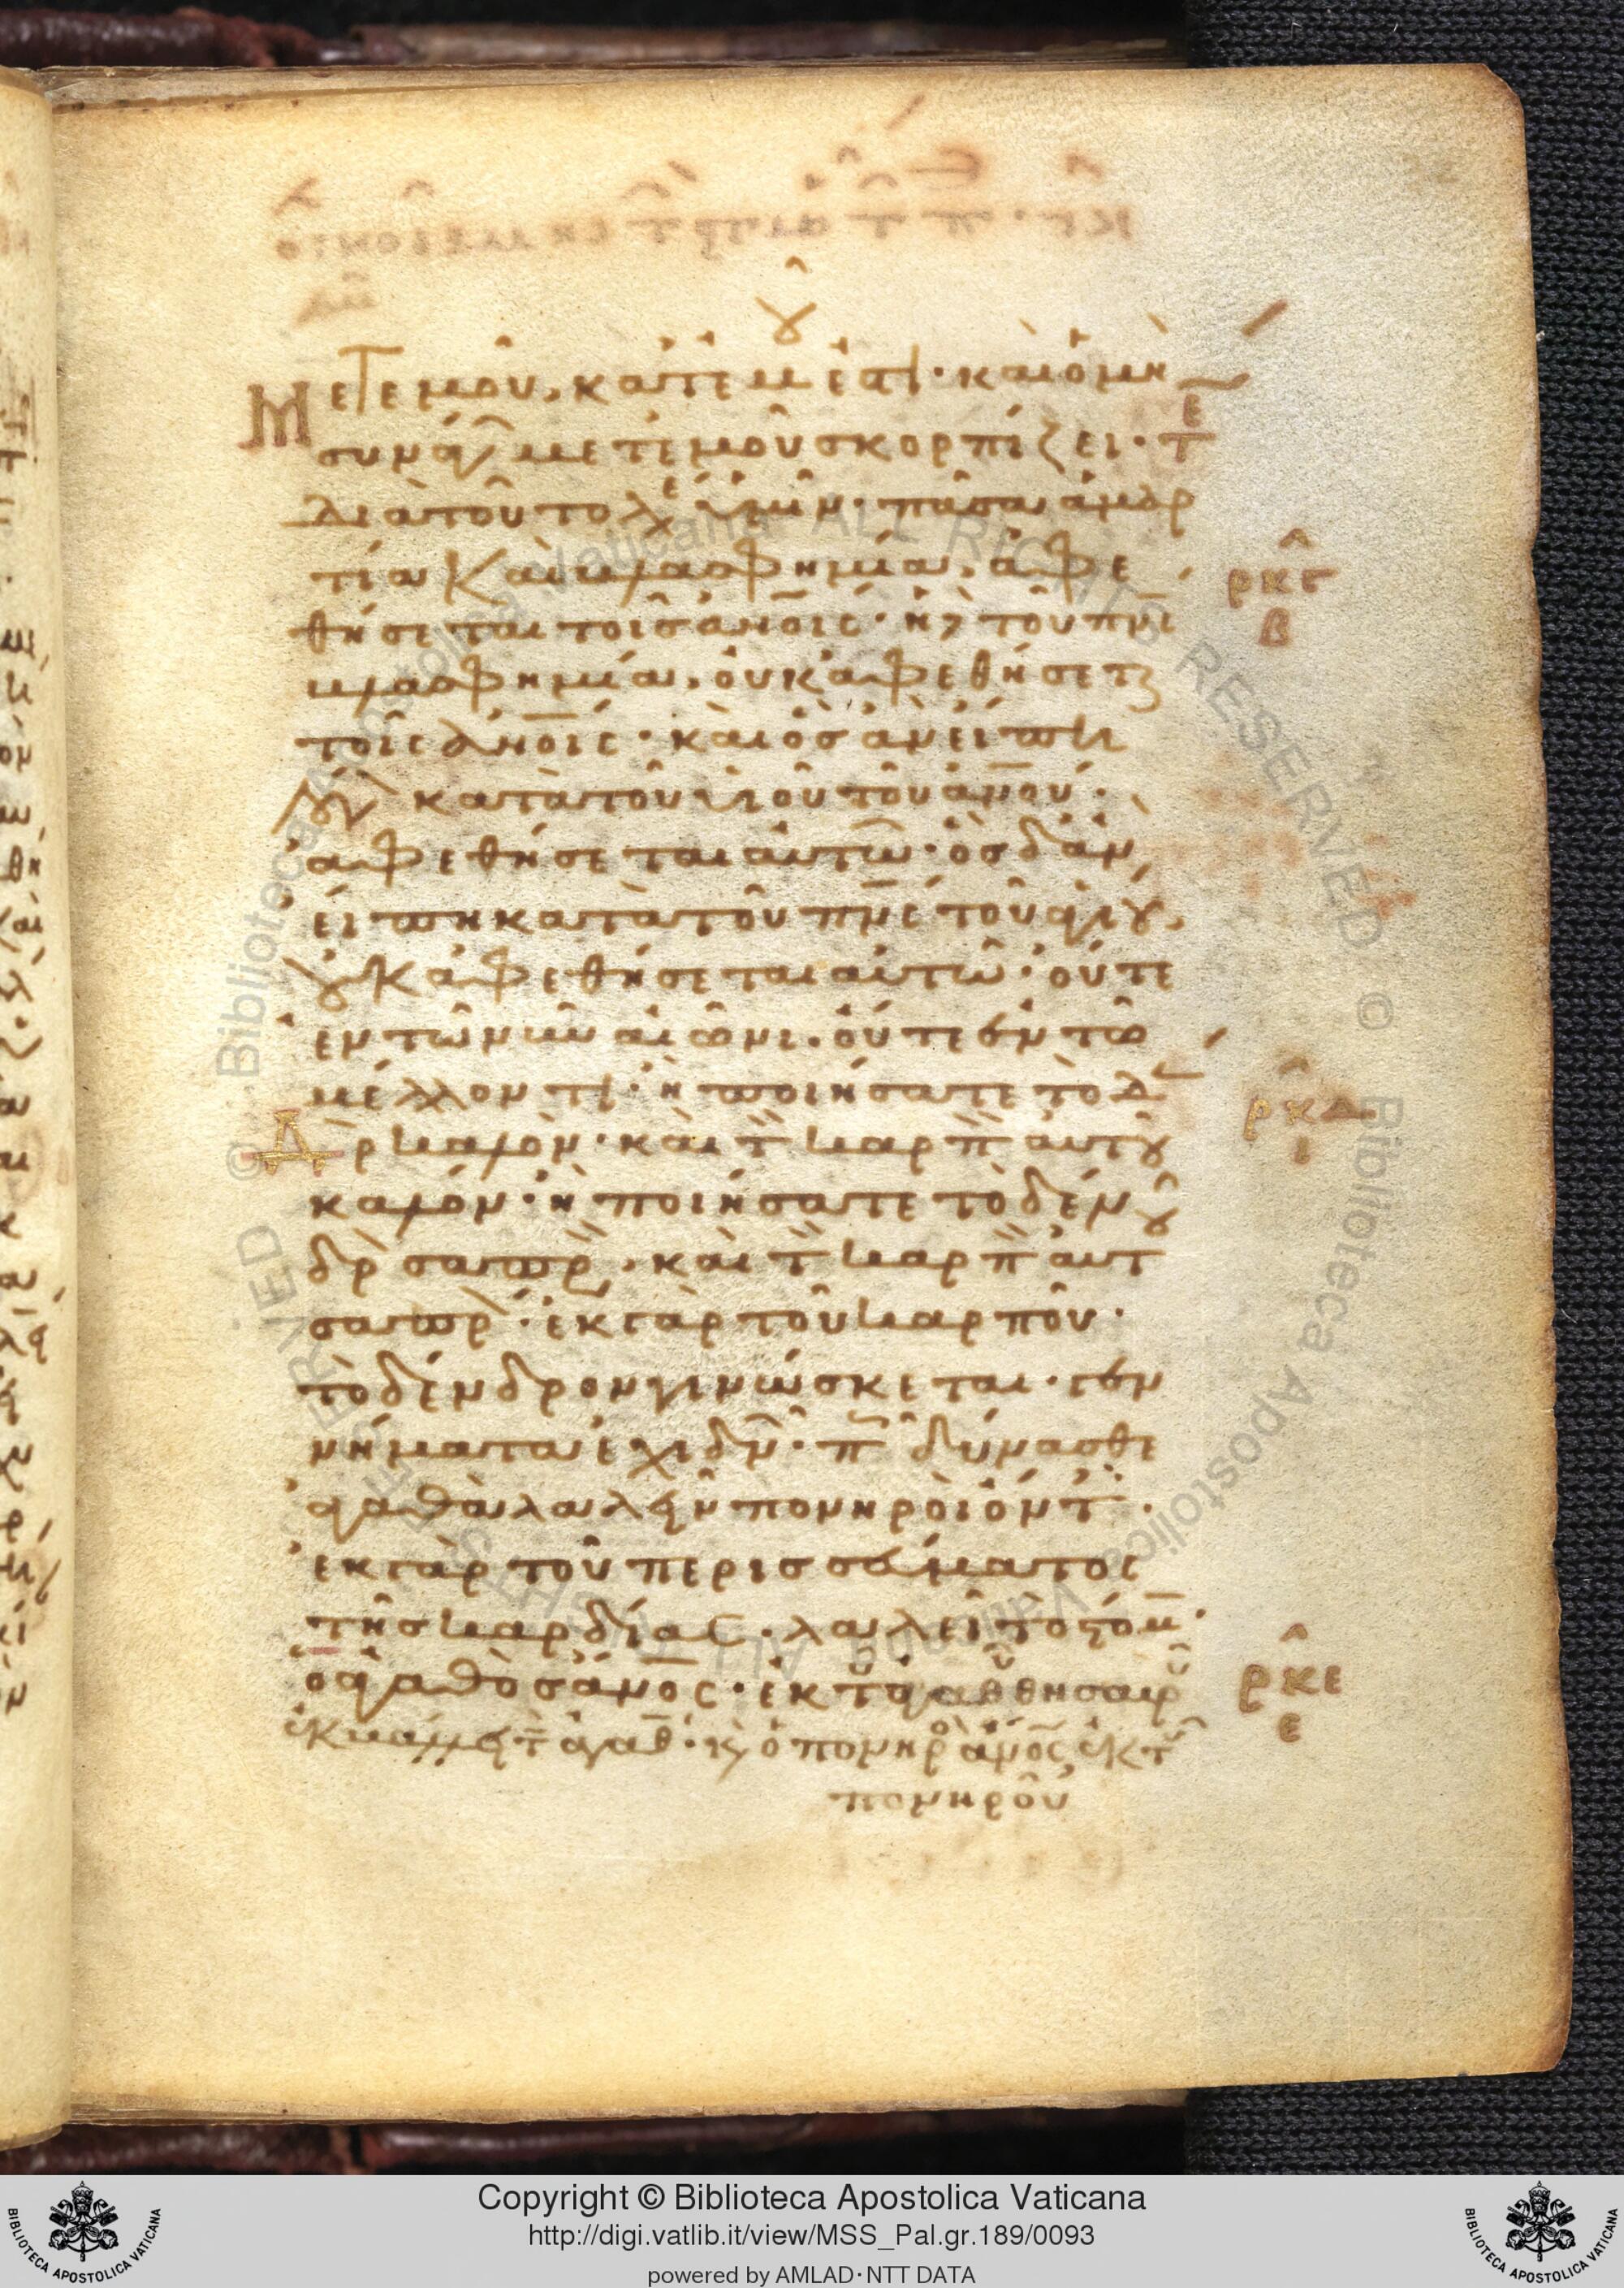 ετεμοῦ, κατ ἐμοῦ ἐστι· καὶ ὁ μὴ
συνάγων μετ ἐμοῦ σκορπίζει·
διατοῦτο λέγω ὑμῖν· πᾶσα ἁμαρ
τία καὶ βλασφημία, ἀφε
θήσεται τοῖς ἀνοις· ἡ δὲ τοῦ πνς
βλασφημία, οὐκ ἀφεθήσεται
τοῖς ἀνοις· καὶ ὃς ἂν εἴπῃ
λόγον κατὰ τοῦ υἱοῦ τοῦ ἀνου·
ἀφεθήσεται αὐτῶ· ὃς δ' ἂν
εἴπη κατὰ τοῦ πνς τοῦ ἁγίου,
οὐκ ἀφεθήσεται αὐτῶ· οὔτε
ἐν τῶ νῦν αἰῶνι· οὔτε ἐν τῶ
μέλλοντι· ἢ ποιήσατε τὸ δ
ρ καλὸν· καὶ τ καρπ αὐτοῦ
καλόν· ἢ ποιήσατε τὸ δέν
δρ σαπρ, καὶ τ καρπ αὐτ
σαπρ· ἐκ γὰρ τοῦ καρποῦ·
τὸ δένδρον γινώσκεται· γεν
νήματα ἐχιδν· π δύνασθε
ἀγαθὰ λαλεῖν πονηροὶ ὄντ·
ἐκ γὰρ τοῦ περισσεύματος
τῆς καρδίας· λαλεῖ τὸ στόμ·
ὁ ἀγαθὸς ἄνος· ἐκ τοῦ ἀγαθ θησαυρ
ἐκβάλλει τ ἀγαθ· κ ὁ πονηρ ἄνος ἐκ τ
πονηροῦ
ρκγ
β
ρκδ
ι
ρκε
ε
Copyright © Biblioteca Apostolica Vaticana
http://digi.vatlib.it/view/MSS_Pal.gr.189/0093
powered by AMLAD·NTT DATA
BIBLIOTECA APOSTOLICA VATICANA
BIBLIOTECA APOSTOLICA VATICANA